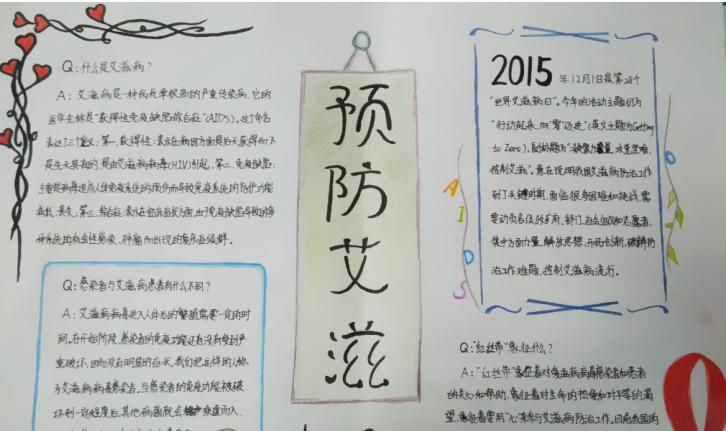 Q:什么是艾滋病?
A:艾滋病是一种病死率极高的严重传染病,它的
医学全称是"获得性免疫缺陷综合症"(AIDS)。这个命名
表达了三个定义:第一,获得性:表示在病因方面是后天获得而不
是先天具有的,是由艾滋病病毒(HIV)引起;第二,免疫缺陷:
主要是病毒造成人体免疫系统的损伤而导致免疫系统的防护功能
减低、丧失;第三,综合症:表示在临床症状方面,由于免疫缺陷导致的多
种系统的机会性感染、肿瘤而出现的复杂症候群。
Q:感染者与艾滋病患者有什么不同?
A:艾滋病病毒进入人体后的繁殖需要一定的时
间。在开始阶段,感染者的免疫功能还没有受到严
重破坏,因而没有明显的症状,我们把这样的人称
为艾滋病病毒感染者。当感染者的免疫功能被破
坏到一定程度后,其他病菌就会乘虚而入,
预
防
艾
滋
2015年12月1日是第28个
"世界艾滋病日"。今年的活动主题仍为
"行动起来,向'零'迈进"(英文主题为Getting
to Zero),副标题为"凝聚力量,攻坚克难,
控制艾滋"。意在说明我国艾滋病防治工作
到了关键时期,面临很多困难和挑战,需
要动员各级政府、部门、社会组织和志愿者,
集中方面力量,解放思想,开拓创新,破解防
治工作难题,控制艾滋病流行。
A
I
D
S
Q:"红丝带"象征什么?
A:"红丝带"象征着对艾滋病病毒感染者和患者
的关心和帮助,象征着对生命的热爱和对平等的渴
望,象征着要用"心"来参与艾滋病防治工作。目前我国的